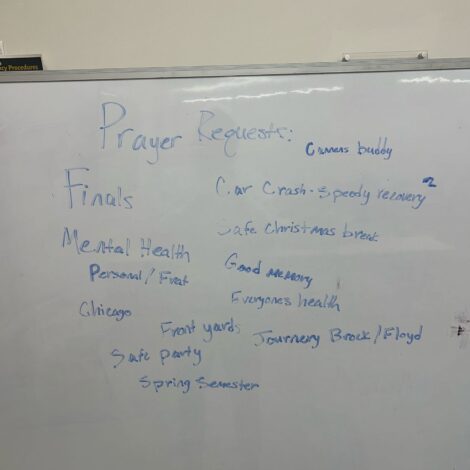 cy Procedures
Prayer Requests:
Camens buddy
Finals
Car Crash - Speedy recovery 2
Safe Christmas break
Mental Health
Personal / Frat
Good memory
Everyones health
Chicago
Front yards
Journery Brock / Floyd
Safe party
Spring Semester